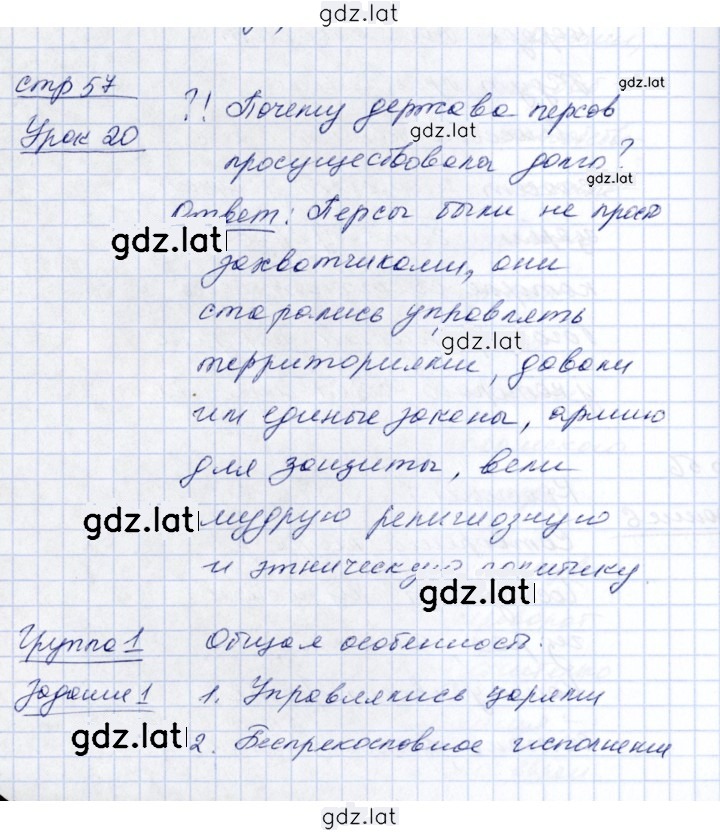 gdz.lat
стр 57
gdz.lat
?! Почему держава персов
Урок 20
gdz.lat
просуществовала долго?
gdz.lat
Ответ: Персы были не просто
gdz.lat
захватчиками, они
старались управлять
gdz.lat
территориями, давали
им единые законы, армию
для защиты, вели
gdz.lat
мудрую религиозную
и этническую политику
gdz.lat
Группа 1 Общая особенность:
Задание 1 1. Управлялись царями
gdz.lat
2. Беспрекословное исполнение
gdz.lat